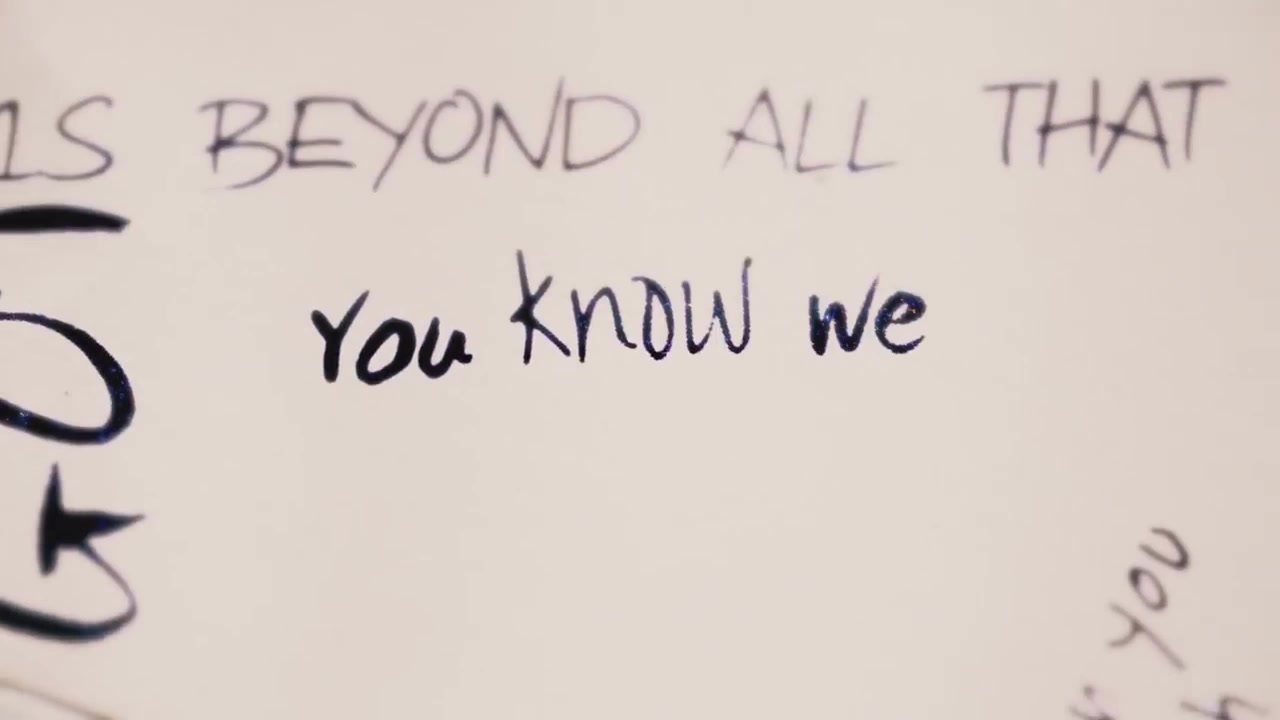 IS BEYOND ALL THAT
You know we
YOU